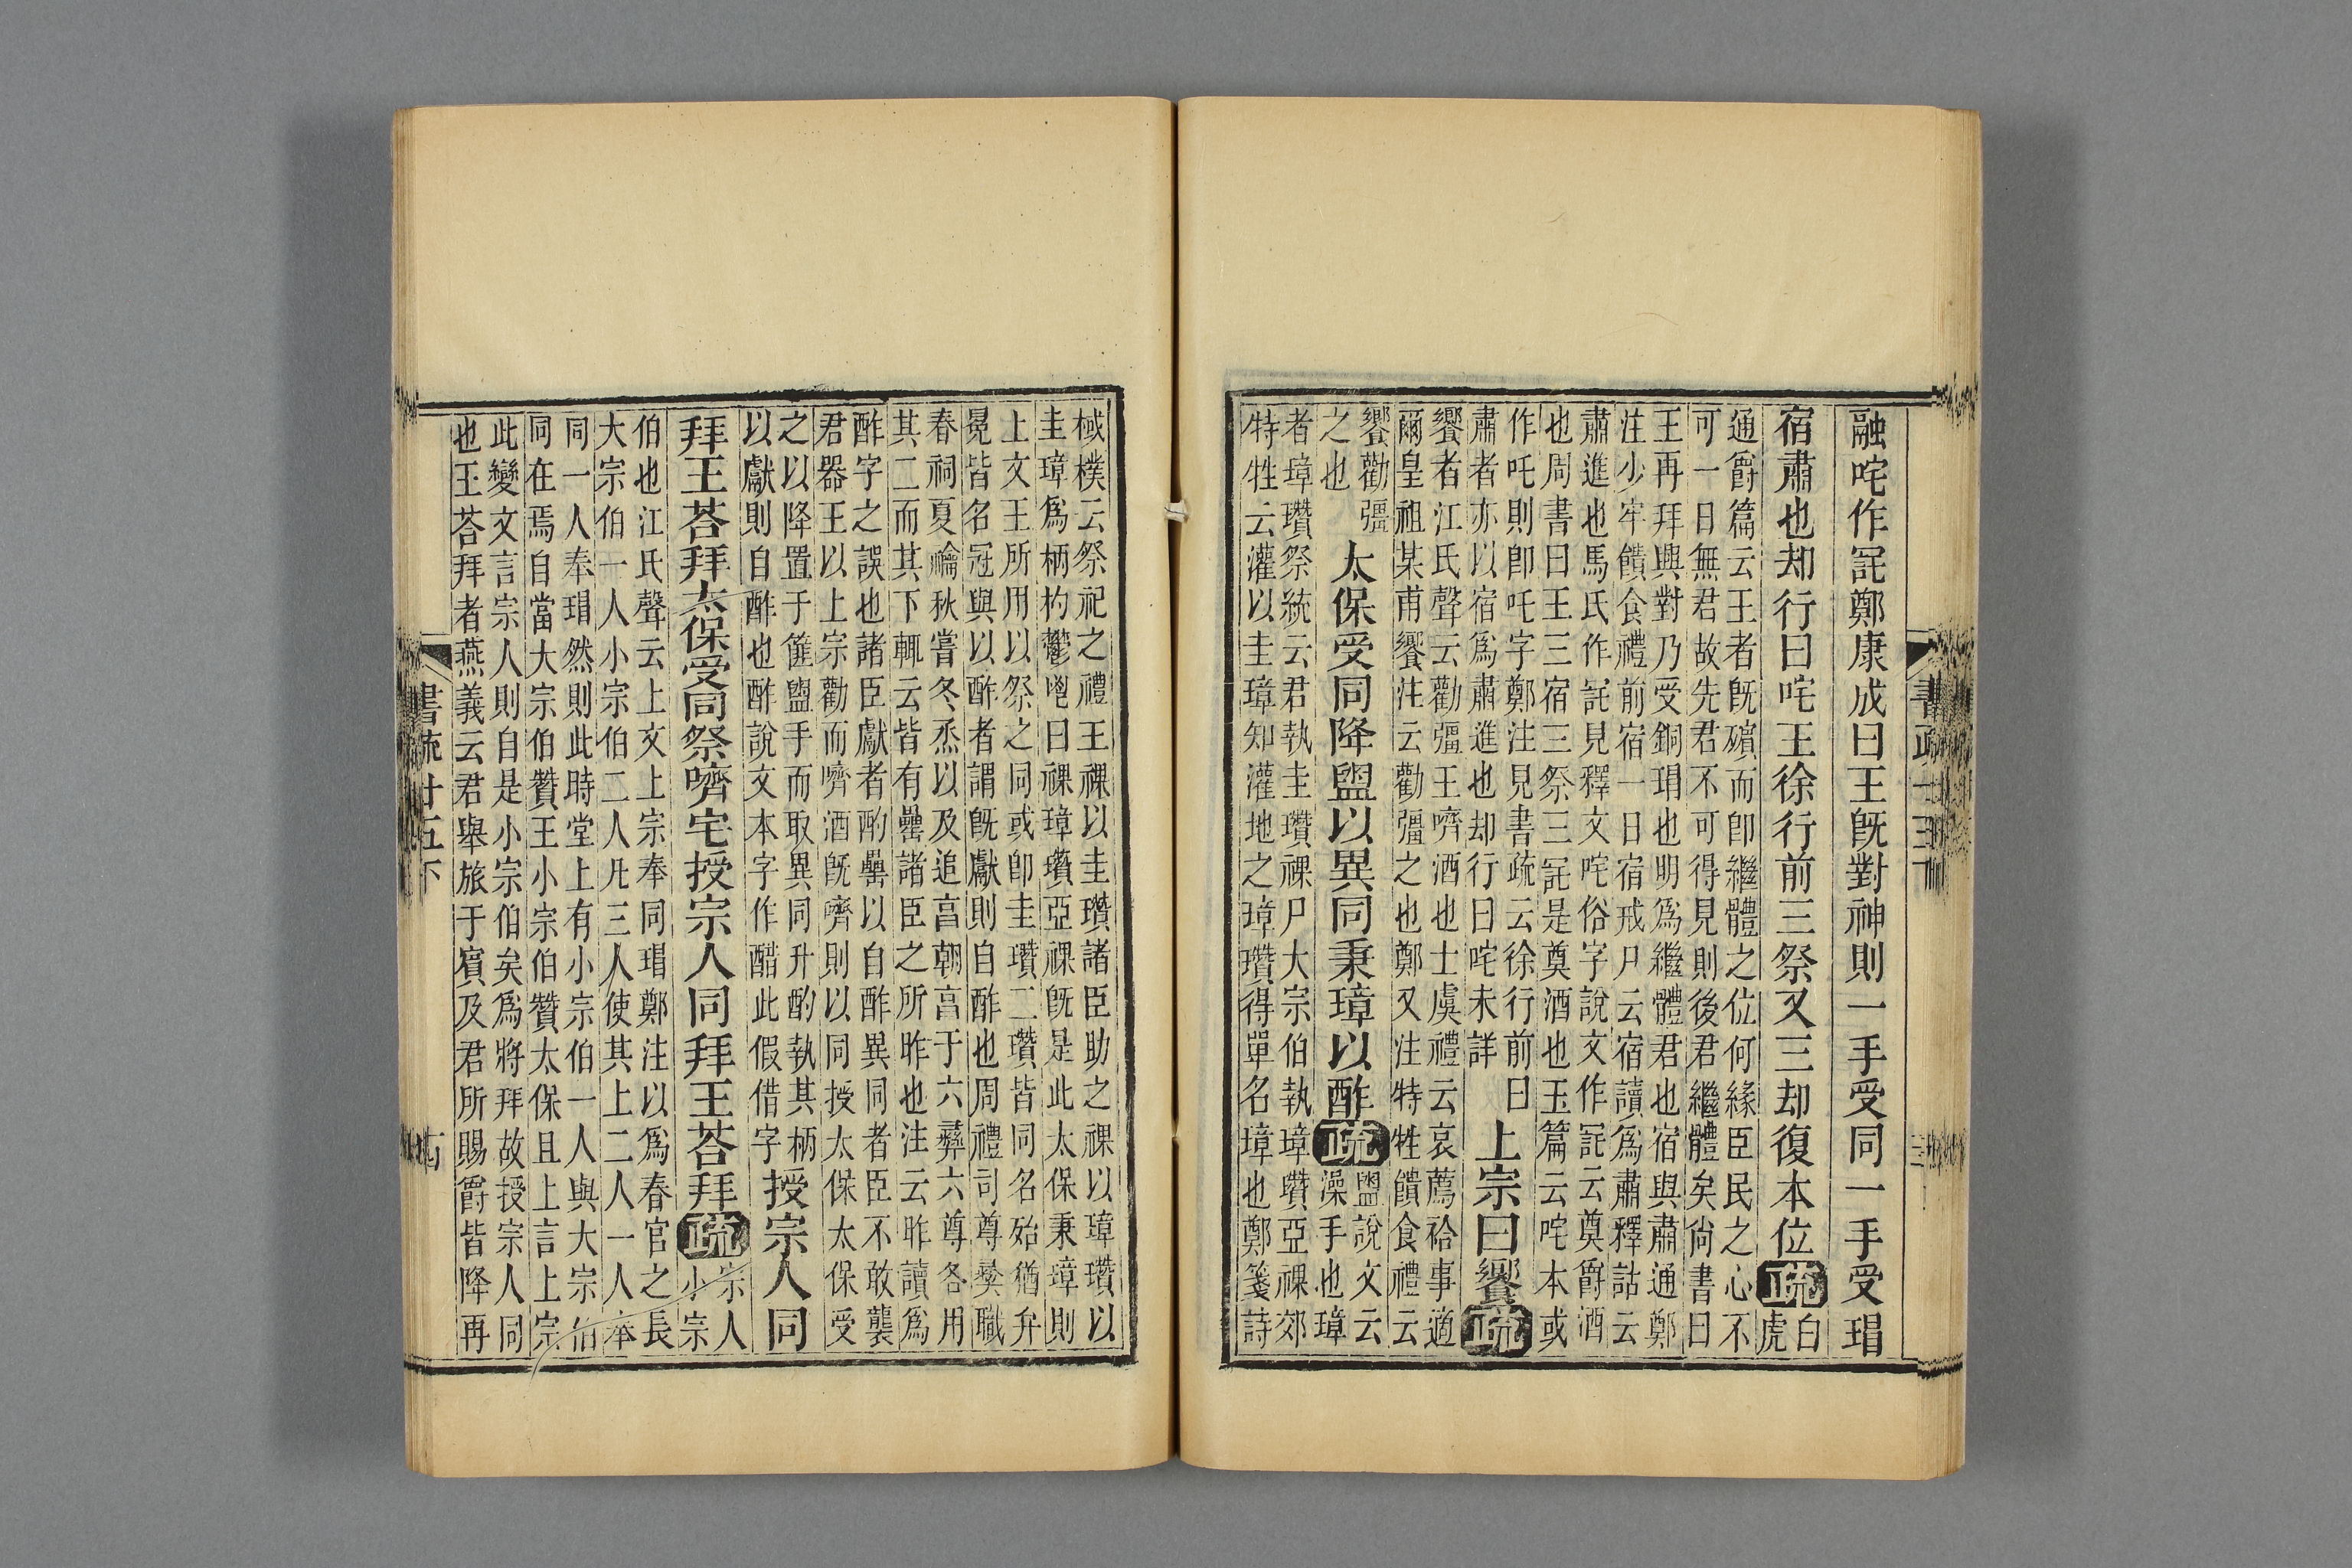 融咤作詫鄭康成曰王旣對神則一手受同一手受瑁
宿肅也却行曰咤王徐行前三祭又三却復本位疏白
虎
通爵篇云王者旣殯而卽繼體之位何緣臣民之心不
可一日無君故先君不可得見則後君繼體矣尙書曰
王再拜興對乃受銅瑁也明爲繼體君也宿與肅通鄭
注少牢饋食禮前宿一日宿戒尸云宿讀爲肅釋詁云
肅進也馬氏作詫見釋文咤俗字說文作詫云奠爵酒
也周書曰王三宿三祭三詫是奠酒也玉篇云咤本或
作吒則卽吒字鄭注見書疏云徐行前曰
肅者亦以宿爲肅進也却行曰咤未詳
上宗曰饗疏
饗者江氏聲云勸彊王嚌酒也士虞禮云哀薦祫事適
爾皇祖某甫饗注云勸彊之也鄭又注特牲饋食禮云
饗勸彊
之也
太保受同降盥以異同秉璋以酢疏
盥說文云
澡手也璋
者璋瓚祭統云君執圭瓚祼尸大宗伯執璋瓚亞祼郊
特牲云灌以圭璋知灌地之璋瓚得單名璋也鄭箋詩
棫樸云祭祀之禮王祼以圭瓚諸臣助之祼以璋瓚以
圭璋爲柄杓鬱鬯曰祼璋瓚亞祼旣是此太保秉璋則
上文王所用以祭之同或卽圭瓚二瓚皆同名殆猶弁
冕皆名冠與以酢者謂旣獻則自酢也周禮司尊彝職
春祠夏禴秋嘗冬烝以及追亯朝亯于六彝六尊各用
其二而其下輒云皆有罍諸臣之所昨也注云昨讀爲
酢字之誤也諸臣獻者酌罍以自酢異同者臣不敢襲
君器王以上宗勸而嚌酒旣嚌則以同授太保太保受
之以降置于篚盥手而取異同升酌執其柄
以獻則自酢也酢說文本字作醋此假借字
授宗人同
拜王荅拜太保受同祭嚌宅授宗人同拜王荅拜疏
宗人
小宗
伯也江氏聲云上文上宗奉同瑁鄭注以爲春官之長
大宗伯一人小宗伯二人凡三人使其上二人一人奉
同一人奉瑁然則此時堂上有小宗伯一人與大宗伯
同在焉自當大宗伯贊王小宗伯贊太保且上言上宗
此變文言宗人則自是小宗伯矣爲將拜故授宗人同
也王荅拜者燕義云君舉旅于賓及君所賜爵皆降再
書疏廿五下